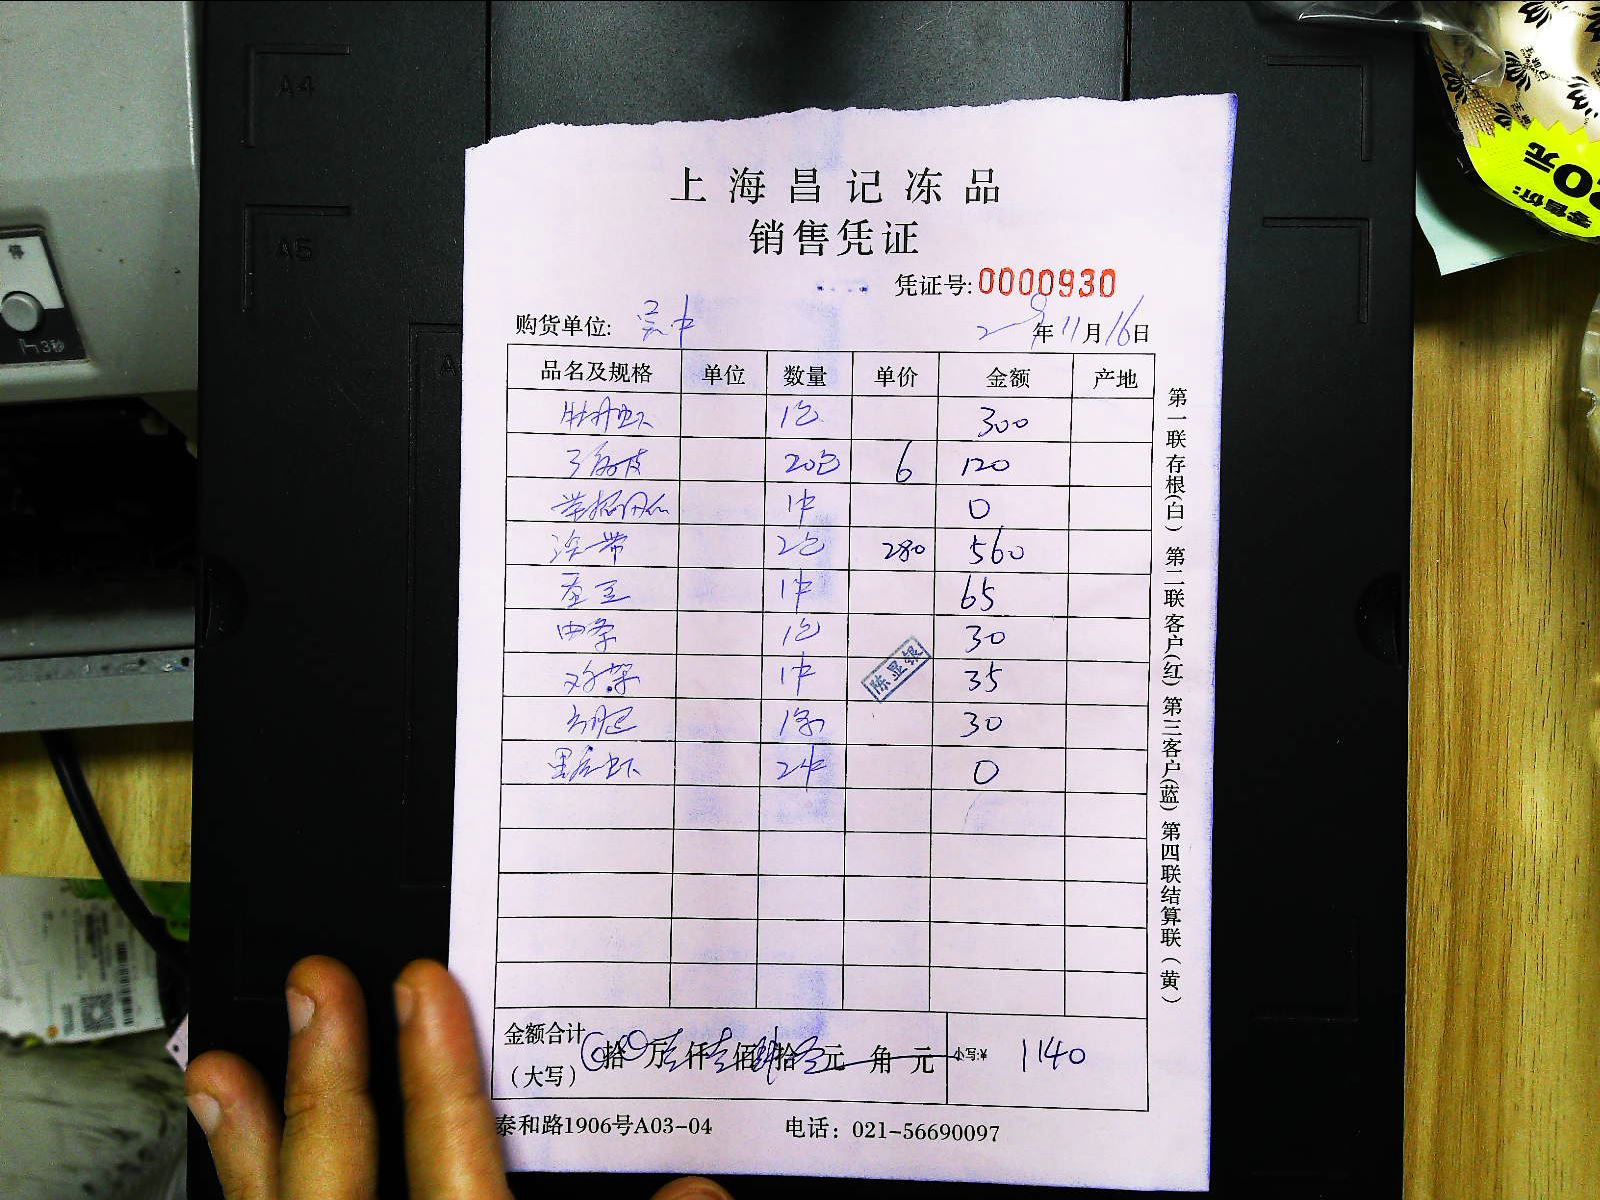 A4
A5
停
3秒
零售价:
20元
上海昌记冻品
销售凭证
凭证号:0000930
购货单位: 吴中 年11月16日
品名及规格 单位 数量 单价 金额 产地
牡丹虾 1包 300
20包 6 120
1件 0
海带 2包 280 560
蚕豆 1件 65
1包 30
1件 35
1条 30
黑虎虾 2件 0
陈显银
金额合计(大写) 拾万壹仟壹佰肆拾零元 角 元 小写:¥ 1140
泰和路1906号A03-04 电话：021-56690097
第一联存根(白) 第二联客户(红) 第三客户(蓝) 第四联结算联(黄)